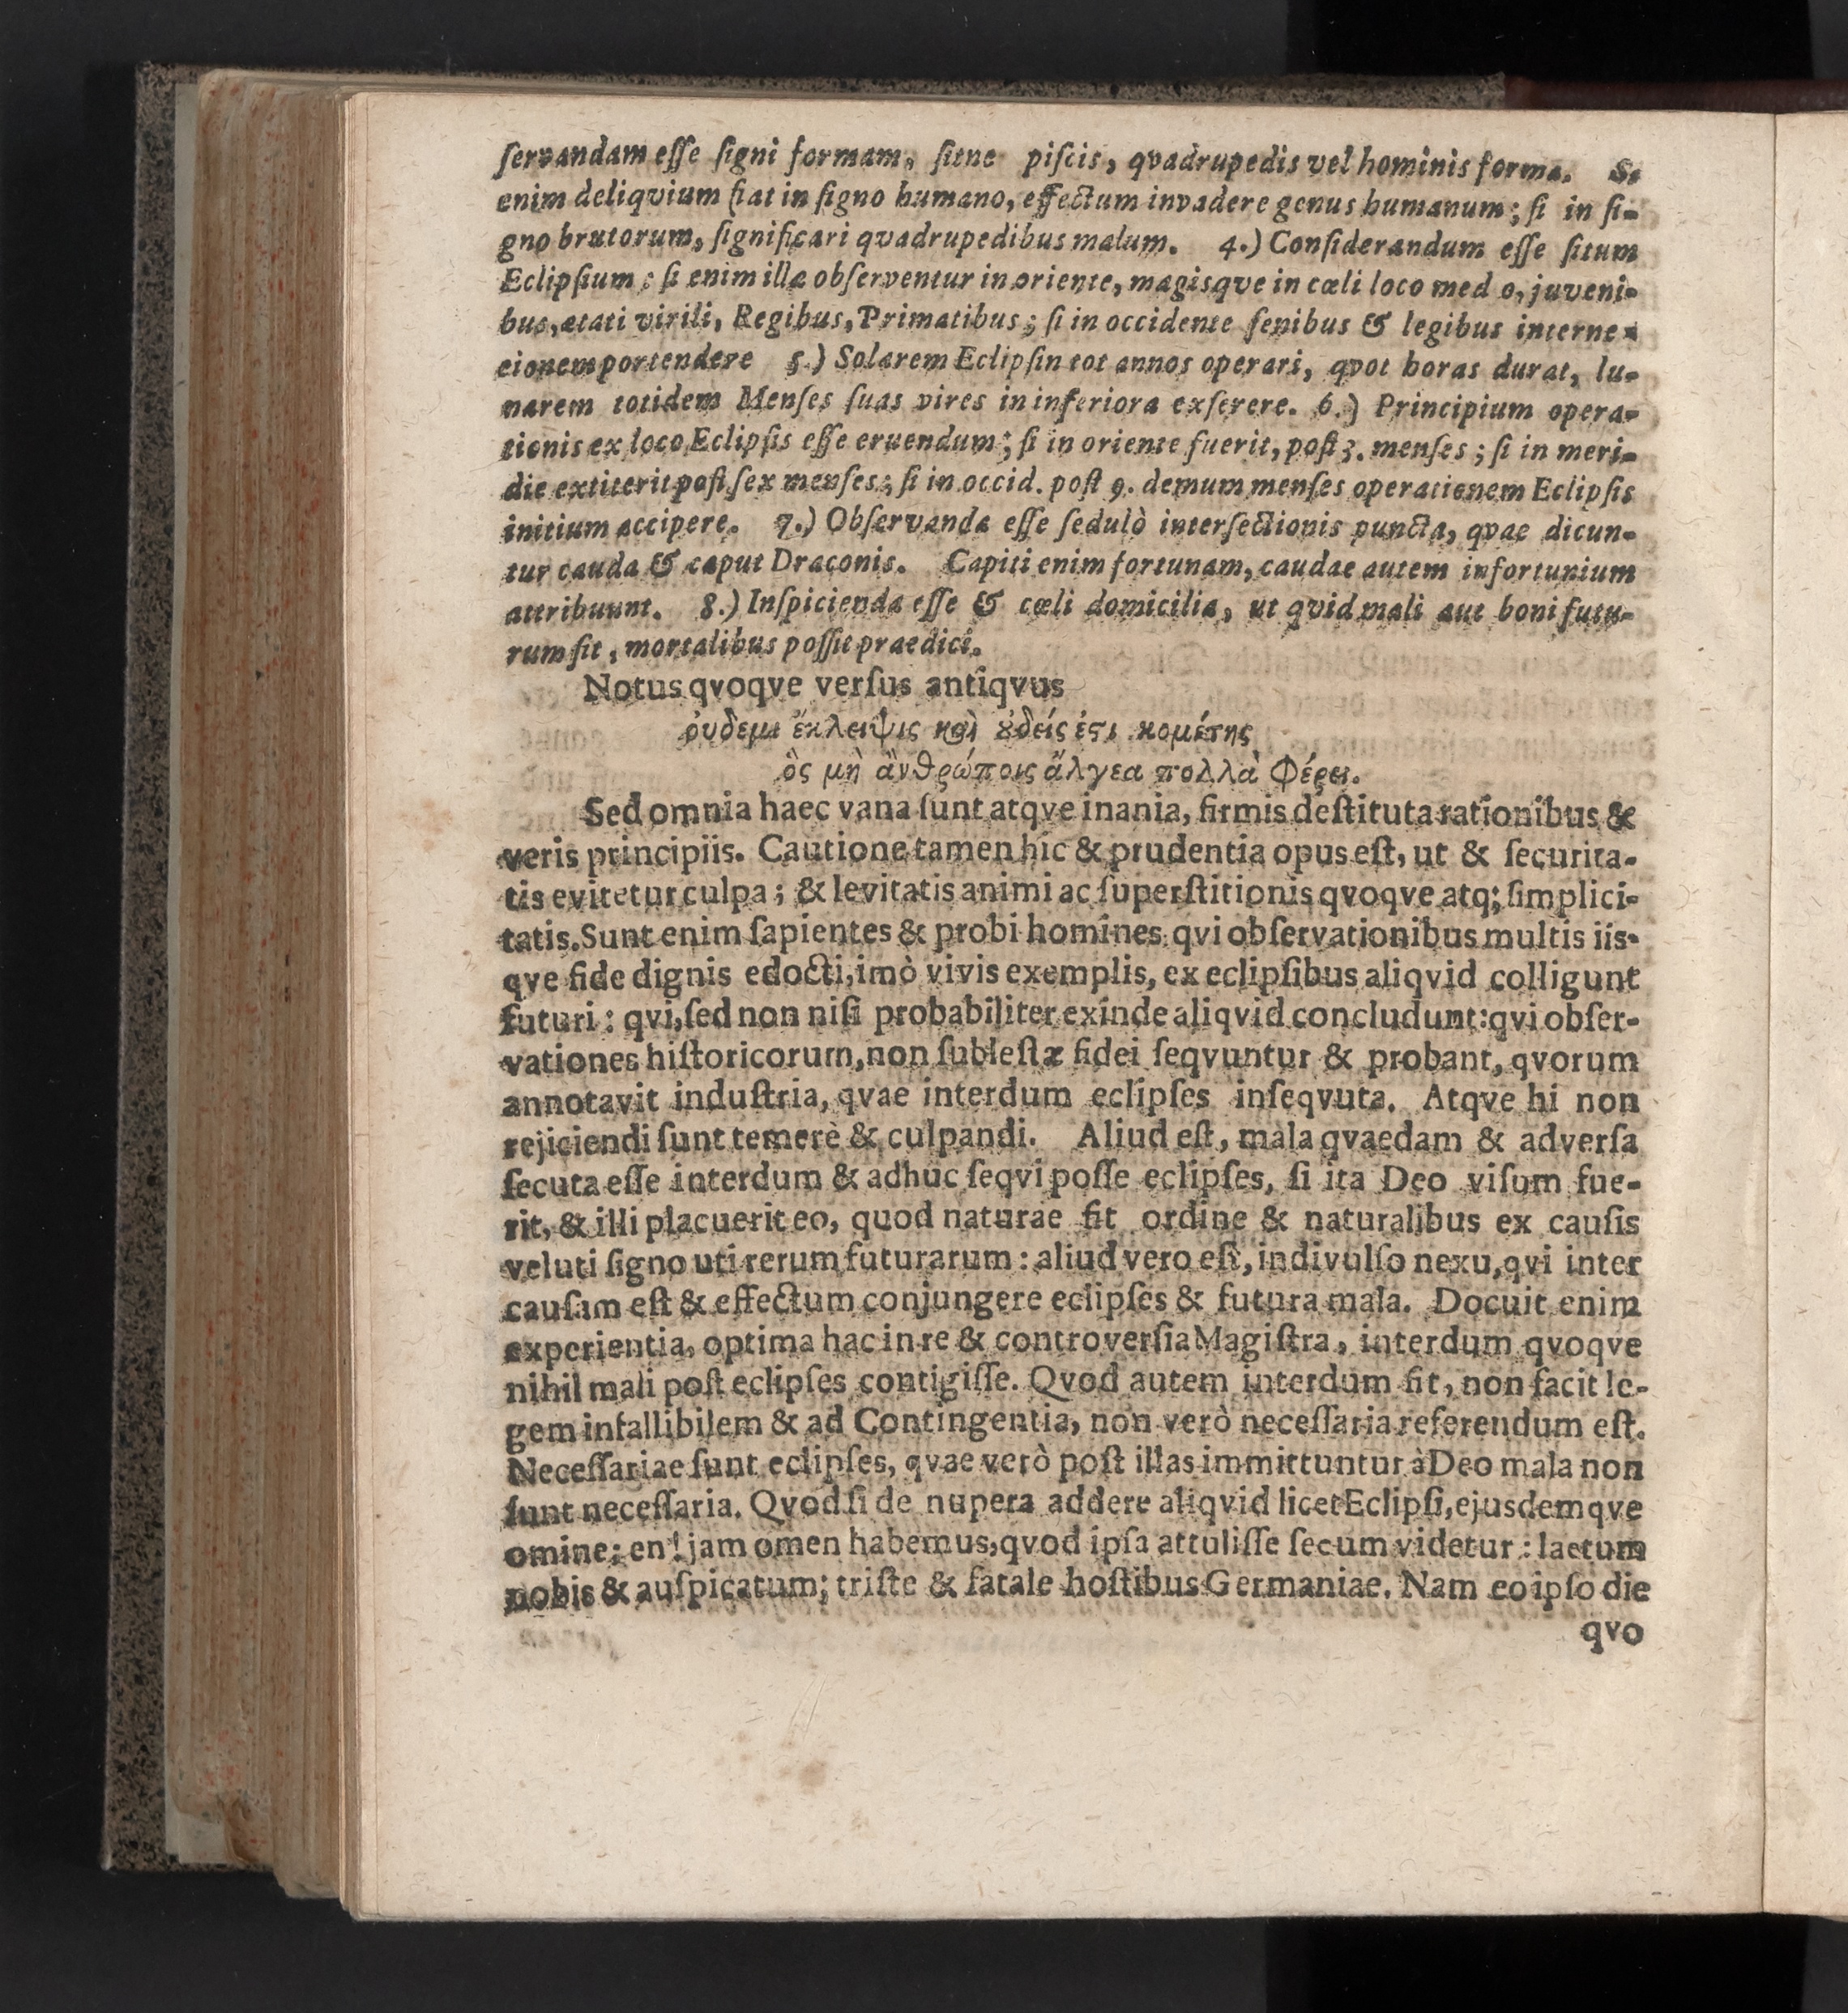 ſervandam eſſe ſigni formam, ſitne piſcis, qvadrupedis vel hominis forma. Si
enim deliqvium fiat in ſigno humano, effectum invadere genus humanum; ſi in ſi-
gno brutorum, ſignificari qvadrupedibus malum. 4.) Conſiderandum eſſe ſitum
Eclipſium: ſi enim illa obſerventur in oriente, magisqve in cœli loco med o, juveni-
bus, ætati virili, Regibus, Primatibus; ſi in occidente ſenibus & legibus interne-
cionem portendere 5.) Solarem Eclipſin tot annos operari, qvot horas durat, lu-
narem totidem Menſes ſuas vires in inferiora exſerere. 6.) Principium opera-
tionis ex loco Eclipſis eſſe eruendum; ſi in oriente fuerit, poſt 3. menſes; ſi in meri-
die extiterit poſt ſex menſes; ſi in occid. poſt 9. demum menſes operationem Eclipſis
initium accipere. 7.) Obſervanda eſſe ſedulò interſectionis puncta, qvae dicun-
tur cauda & caput Draconis. Capiti enim fortunam, caudae autem infortunium
attribuunt. 8.) Inſpicienda eſſe & cœli domicilia, ut qvid mali aut boni futu-
rum ſit, mortalibus poſſit praedici.
Notus qvoqve verſus antiqvus
ὀυδεμι ἔκλειψις καὶ ȣ̓δείς ἐϛι κομέτης
ὃς μὴ ἂνθρώποις ἄλγεα πολλὰ φέρει.
Sed omnia haec vana ſunt atqve inania, firmis deſtituta rationibus &
veris principiis. Cautione tamen hîc & prudentia opus eſt, ut & ſecurita-
tis evitetur culpa; & levitatis animi ac ſuperſtitionis qvoqve atq; ſimplici-
tatis. Sunt enim ſapientes & probi homines qvi obſervationibus multis iis-
qve fide dignis edocti, imò vivis exemplis, ex eclipſibus aliqvid colligunt
futuri: qvi, ſed non niſi probabiliter exinde aliqvid concludunt: qvi obſer-
vationes hiſtoricorum, non ſubleſtæ fidei ſeqvuntur & probant, qvorum
annotavit induſtria, qvae interdum eclipſes inſeqvuta. Atqve hi non
rejiciendi ſunt temerè & culpandi. Aliud eſt, mala qvaedam & adverſa
ſecuta eſſe interdum & adhuc ſeqvi poſſe eclipſes, ſi ita Deo viſum fue-
rit, & illi placuerit eo, quod naturae fit ordine & naturalibus ex cauſis
veluti ſigno uti rerum futurarum: aliud vero eſt, indivulſo nexu, qvi inter
cauſam eſt & effectum conjungere eclipſes & futura mala. Docuit enim
experientia, optima hac in re & controverſia Magiſtra, interdum qvoqve
nihil mali poſt eclipſes contigiſſe. Qvod autem interdum fit, non facit le-
gem infallibilem & ad Contingentia, non verò neceſſaria referendum eſt.
Neceſſariae ſunt eclipſes, qvae verò poſt illas immittuntur à Deo mala non
ſunt neceſſaria. Qvod ſi de nupera addere aliqvid licet Eclipſi, ejusdemqve
omine; en! jam omen habemus, qvod ipſa attuliſſe ſecum videtur: laetum
nobis & auſpicatum; triſte & fatale hoſtibus Germaniae. Nam eo ipſo die
qvo